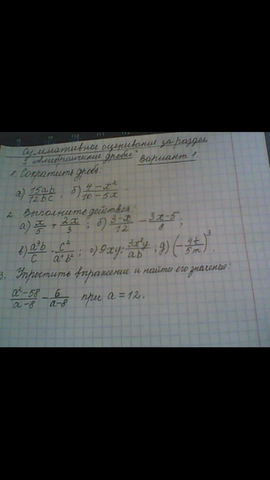 Суммативное оценивание за раздел
3 "Алгебраические дроби" Вариант 1
1. Сократить дробь:
а) 15ab/12bc ; б) 4-x²/10-5x
2. Выполните действия
а) x/5 + 2x/3 ; б) 3-x/12 - 3x-5/8 ;
в) a³b/c · c²/a²b² ; г) 9xy : 3x²y/ab ; д) (- 4t/5m)³
3. Упростить выражение и найти его значение:
a²-58/a-8 - 6/a-8 при a = 12.